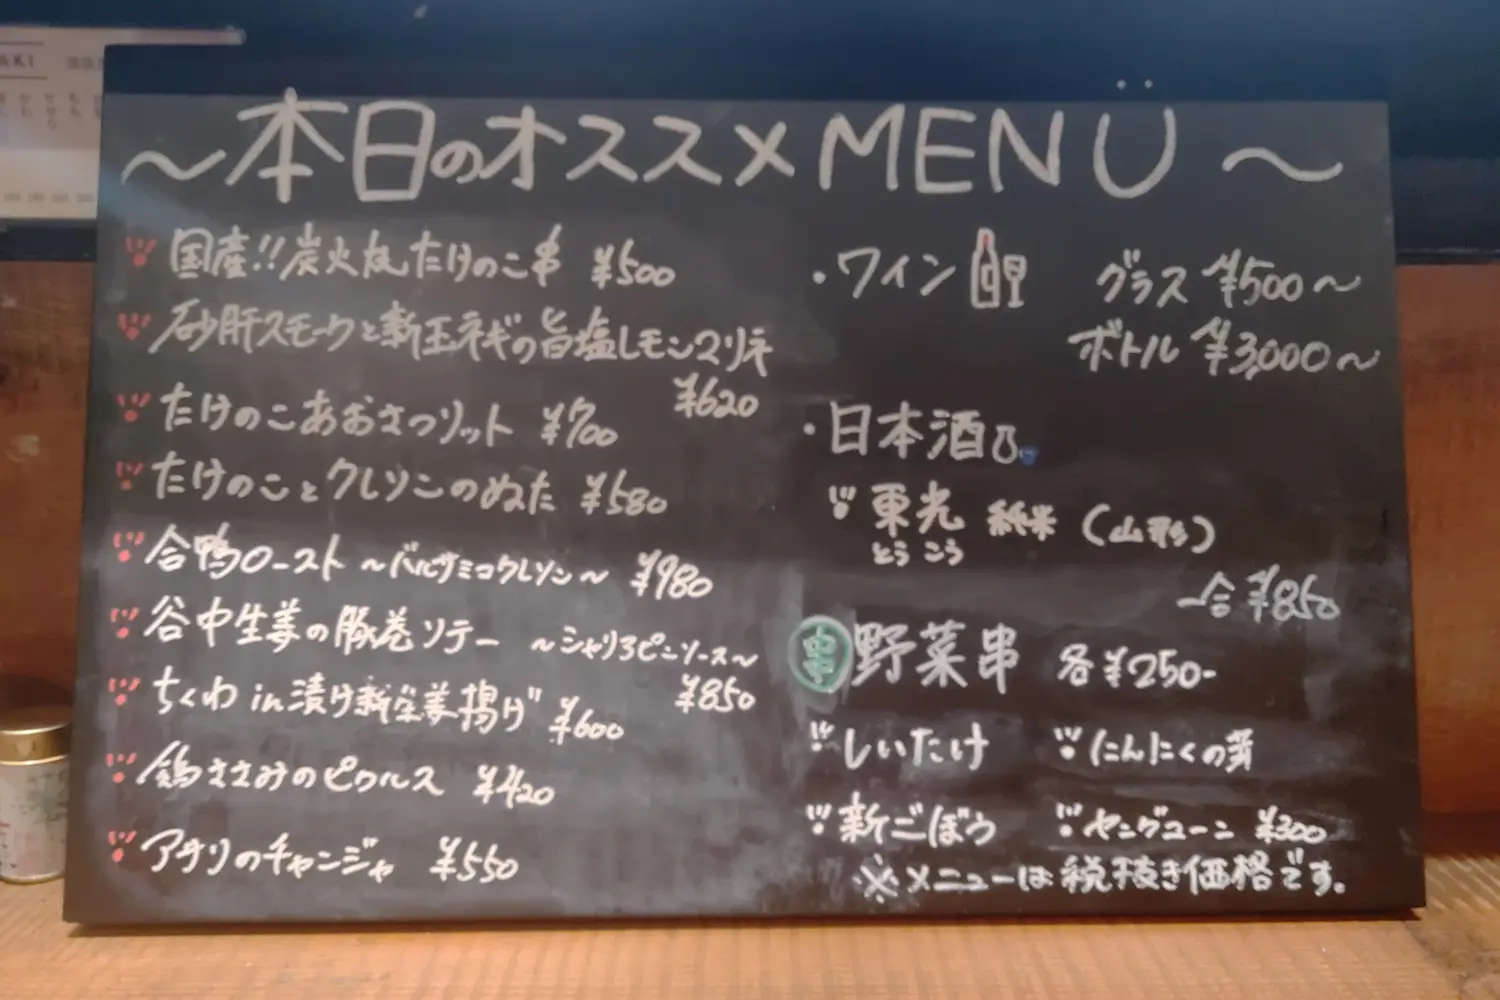 ～本日のオススメMENU～
国産!!炭火焼たけのこ串 ¥500
砂肝スモークと新玉ネギの旨塩レモンマリネ
¥620
たけのこあおさつリット ¥700
たけのことクレソンのぬた ¥580
合鴨ロースト ～バルサミコクレソン～ ¥980
谷中生姜の豚巻ソテー ～シャリアピンソース～
¥850
ちくわin漬け新生姜揚げ ¥600
鶏ささみのピクルス ¥420
アサリのチャンジャ ¥550
・ワイン グラス ¥500～
ボトル ¥3,000～
・日本酒
東光 純米 (山形)
とうこう
一合 ¥850
串 野菜串 各¥250-
しいたけ にんにくの芽
新ごぼう ヤングコーン ¥300
※メニューは税抜き価格です。
AKI